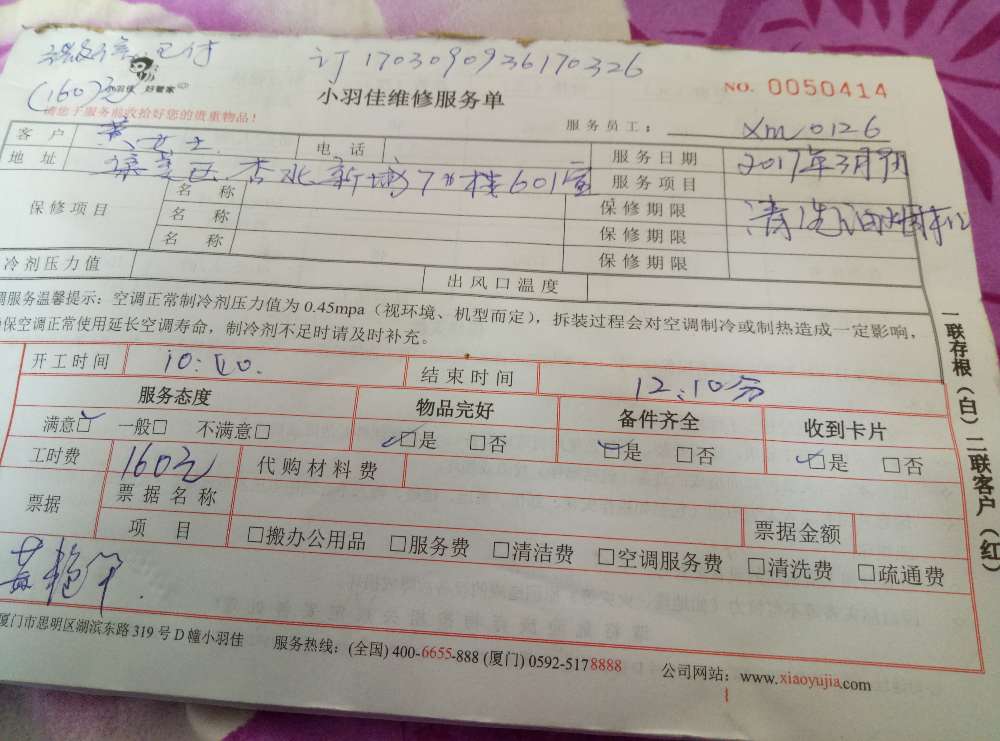 已付
订170309093617​0326
小羽佳 好管家
(160元)
小羽佳维修服务单
NO. 0050414
请您于服务前收拾好您的贵重物品!
服务员工: Xm0126
客户 黄女士 电话 服务日期 2017年3月
地址 集美区杏北新城7#楼601室 服务项目 清洗油烟机
保修项目 名称 保修期限
名称 保修期限
名称 保修期限
冷剂压力值 出风口温度
调服务温馨提示:空调正常制冷剂压力值为0.45mpa(视环境、机型而定),拆装过程会对空调制冷或制热造成一定影响,
保空调正常使用延长空调寿命,制冷剂不足时请及时补充。
一联存根(白)二联客户(红)
开工时间 10:00. 结束时间 12:10分
服务态度 物品完好 备件齐全 收到卡片
满意☑ 一般□ 不满意□ ☑是 □否 ☑是 □否 ☑是 □否
工时费 160元 代购材料费
票据 票据名称 票据金额
项目 □搬办公用品 □服务费 □清洁费 □空调服务费 □清洗费 □疏通费
厦门市思明区湖滨东路319号D幢小羽佳 服务热线:(全国)400-6655-888(厦门)0592-5178888 公司网站:www.xiaoyujia.com